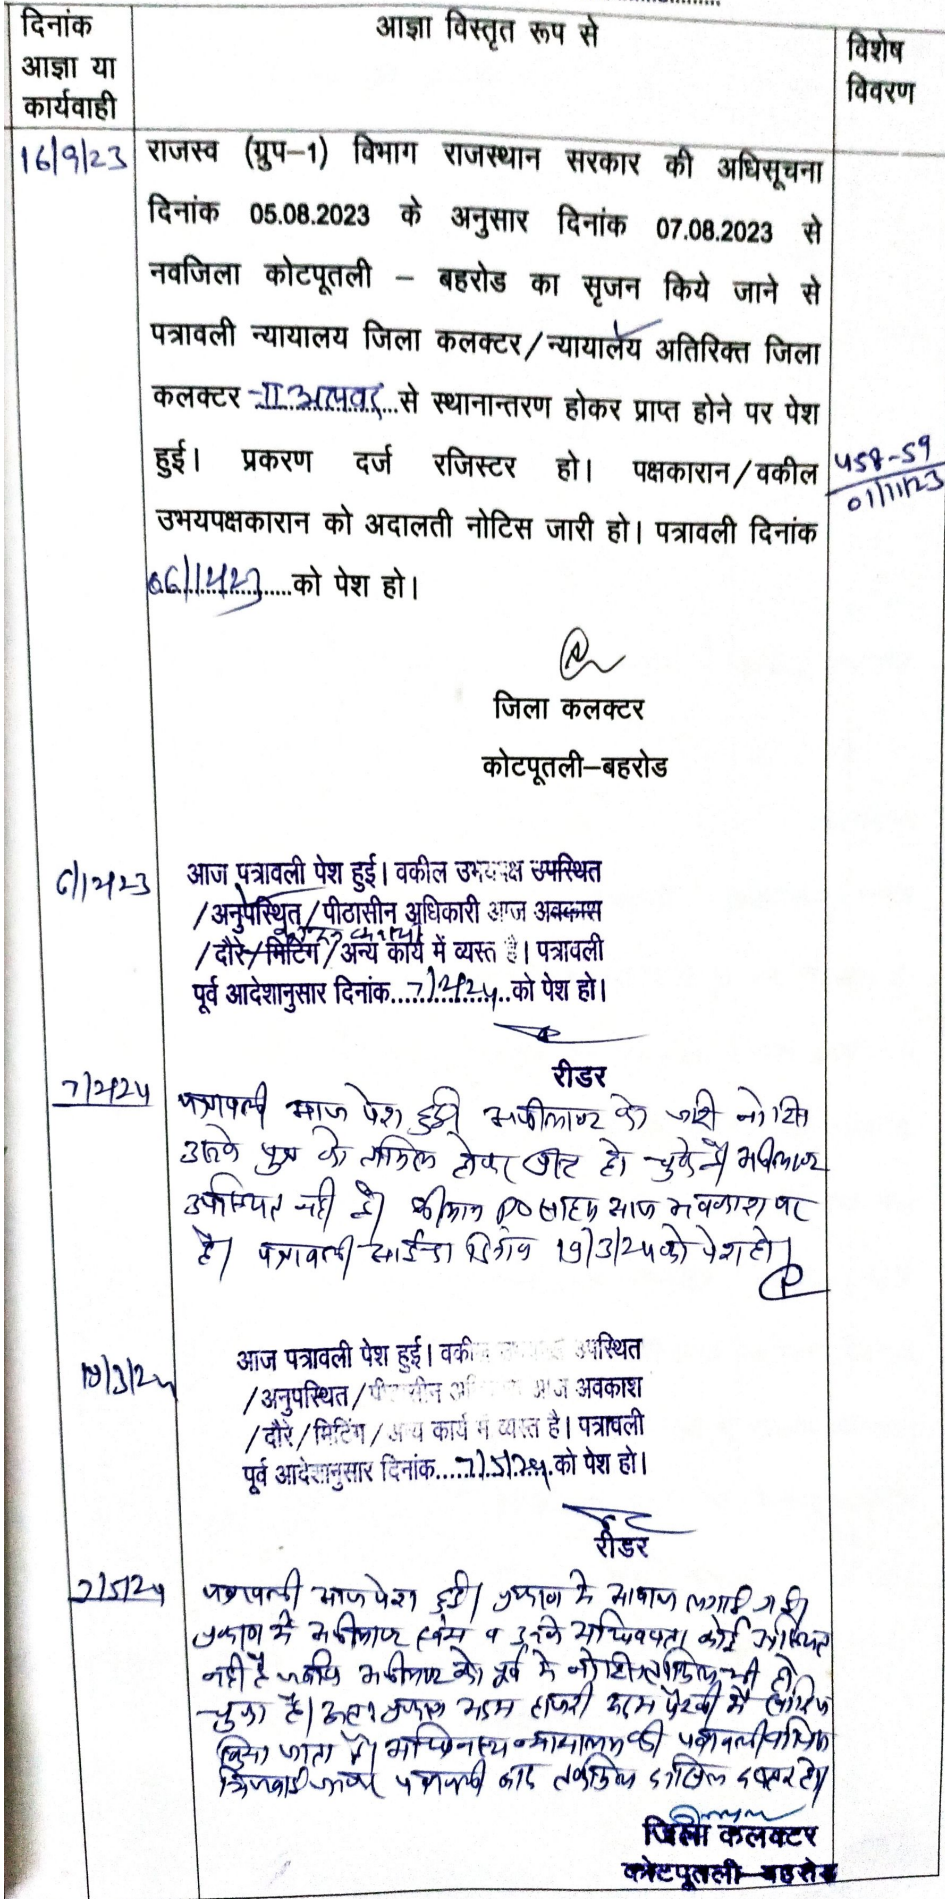 दिनांक
आज्ञा या
कार्यवाही
आज्ञा विस्तृत रूप से
विशेष
विवरण
16/9/23
राजस्व (ग्रुप-1) विभाग राजस्थान सरकार की अधिसूचना
दिनांक 05.08.2023 के अनुसार दिनांक 07.08.2023 से
नवजिला कोटपूतली – बहरोड का सृजन किये जाने से
पत्रावली न्यायालय जिला कलक्टर/न्यायालय अतिरिक्त जिला
कलक्टर -II अलवर से स्थानान्तरण होकर प्राप्त होने पर पेश
हुई। प्रकरण दर्ज रजिस्टर हो। पक्षकारान/वकील
458-59
01/11/23
उभयपक्षकारान को अदालती नोटिस जारी हो। पत्रावली दिनांक
06/12/23 को पेश हो।
जिला कलक्टर
कोटपूतली–बहरोड
6/12/23
आज पत्रावली पेश हुई। वकील उभयपक्ष उपस्थित
/अनुपस्थित/पीठासीन अधिकारी आज अवकास
/दौरे/मिटिंग/अन्य कार्य में व्यस्त है। पत्रावली
पूर्व आदेशानुसार दिनांक 7/2/24 को पेश हो।
रीडर
7/2/24
पत्रावली आज पेश हुई। अपीलान्ट को जारी नोटिस
उसके पुत्र को तामिल होकर प्राप्त हो चुके है। अपीलान्ट
उपस्थित नही है। श्रीमान PO साहब आज अवकाश पर
है। पत्रावली आईन्दा दिनांक 19/3/24 को पेश हो।
19/3/24
आज पत्रावली पेश हुई। वकील उपस्थित
/अनुपस्थित/पीठासीन आज अवकाश
/दौरे/मिटिंग/अन्य कार्य में व्यस्त है। पत्रावली
पूर्व आदेशानुसार दिनांक 7/5/24 को पेश हो।
रीडर
7/5/24
पत्रावली आज पेश हुई। प्रकरण मे आवाज लगाई गई।
प्रकरण मे अपीलान्ट स्वंय व उनके अधिवक्ता कोई उपस्थित
नही है जबकि अपीलान्ट को पूर्व मे नोटिस तामिल भी हो
चुका है। अतः प्रकरण अदम हाजरी अदम पैरवी में खारिज
किया जाता है। अधिनस्थ न्यायालय की पत्रावली वापिस
भिजवाई जाकर पत्रावली बाद तकमिल दाखिल दफ्तर हो।
जिला कलक्टर
कोटपूतली–बहरोड